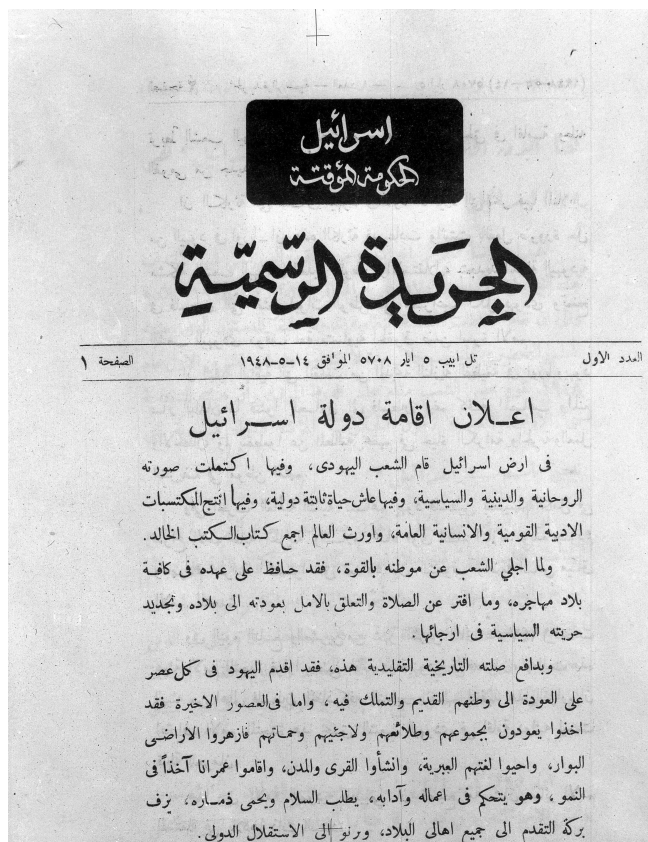 اسرائيل
الحكومة المؤقتة
الجريدة الرسمية
العدد الاول    تل ابيب ٥ ايار ٥٧٠٨ الموافق ١٤-٥-١٩٤٨    الصفحة ١
اعــلان اقامة دولة اســرائيل
فى ارض اسرائيل قام الشعب اليهودى، وفيها اكتملت صورته
الروحانية والدينية والسياسية، وفيها عاش حياة ثابتة دولية، وفيها انتج المكتسبات
الادبية القومية والانسانية العامة، واورث العالم اجمع كتاب الكتب الخالد.
ولما اجلي الشعب عن موطنه بالقوة، فقد حافظ على عهده فى كافة
بلاد مهاجره، وما افتر عن الصلاة والتعلق بالامل بعودته الى بلاده وتجديد
حريته السياسية فى ارجائها.
وبدافع صلته التاريخية التقليدية هذه، فقد اقدم اليهود فى كل عصر
على العودة الى وطنهم القديم والتملك فيه، واما فى العصور الاخيرة فقد
اخذوا يعودون بجموعهم وطلائعهم ولاجئيهم وحماتهم فازهروا الاراضى
البوار، واحيوا لغتهم العبرية، وانشأوا القرى والمدن، واقاموا عمرانا آخذاً فى
النمو، وهو يتحكم فى اعماله وآدابه، يطلب السلام ويحمى ذماره، يزف
بركة التقدم الى جميع اهالى البلاد، ويرنو الى الاستقلال الدولى.